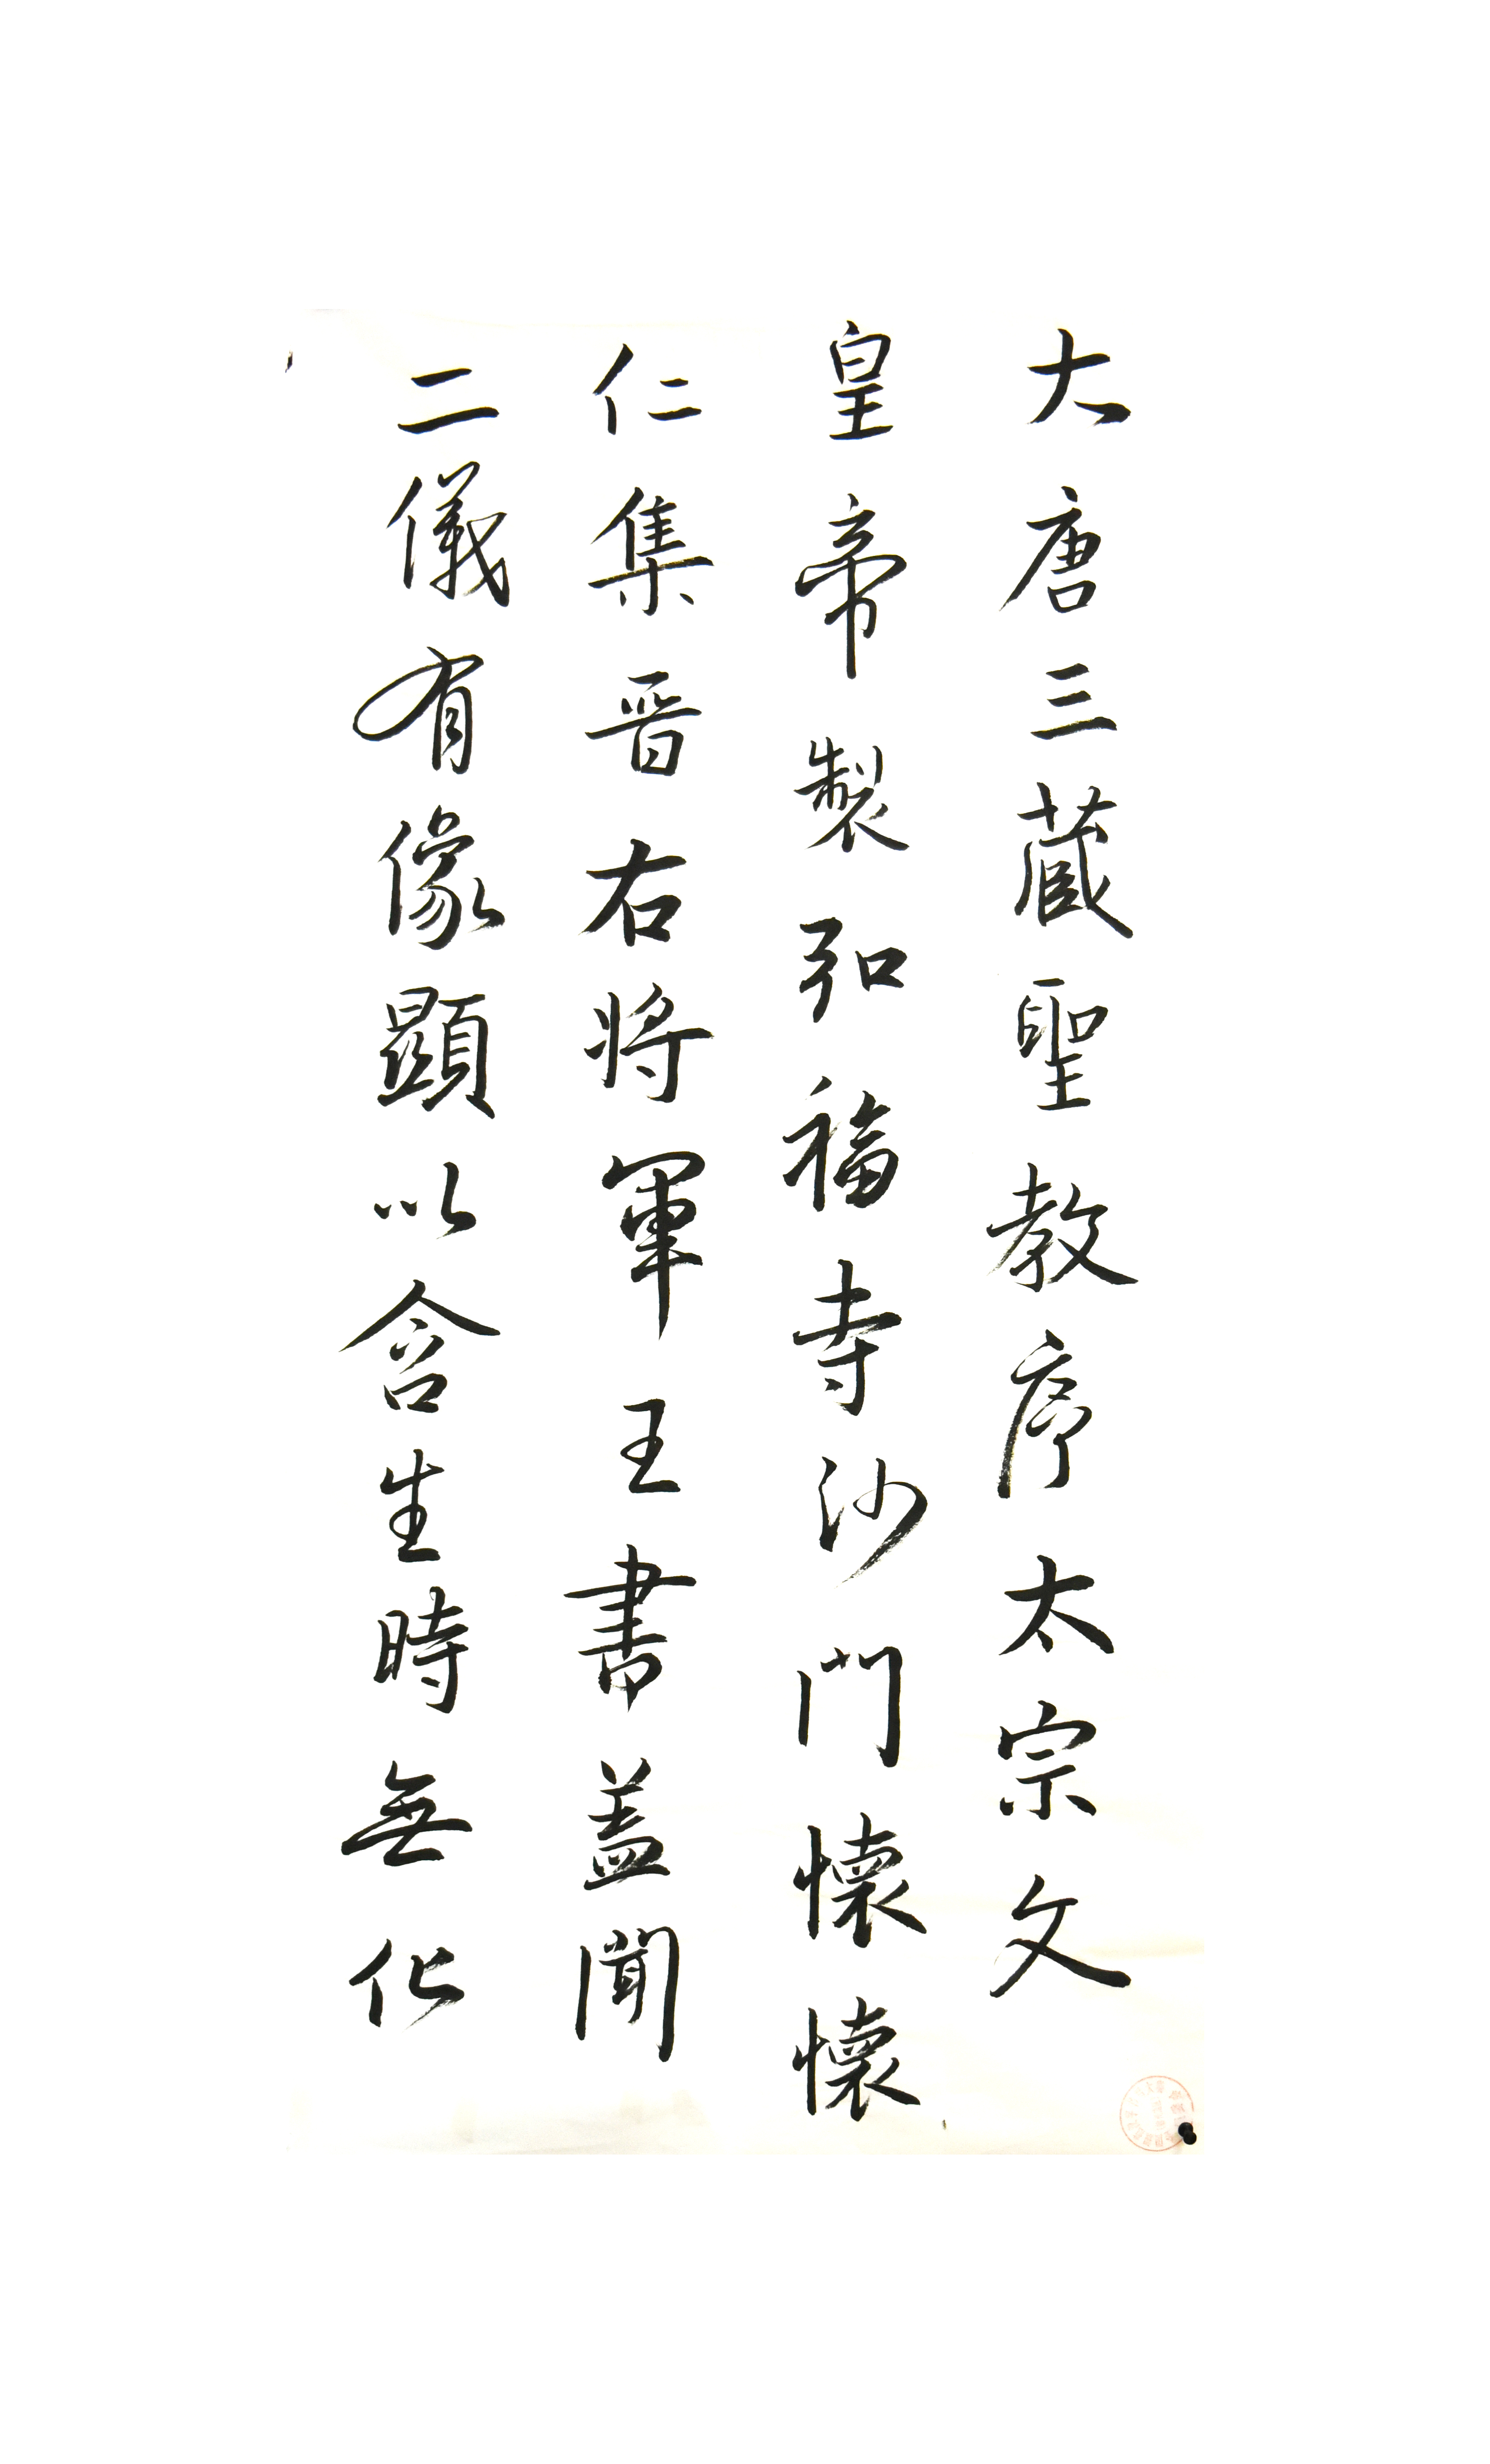 大唐三蔵聖教序太宗文
皇帝製弘福寺沙門懷懷
仁集晋右将軍王書蓋聞
二儀有像顯以含生時無化